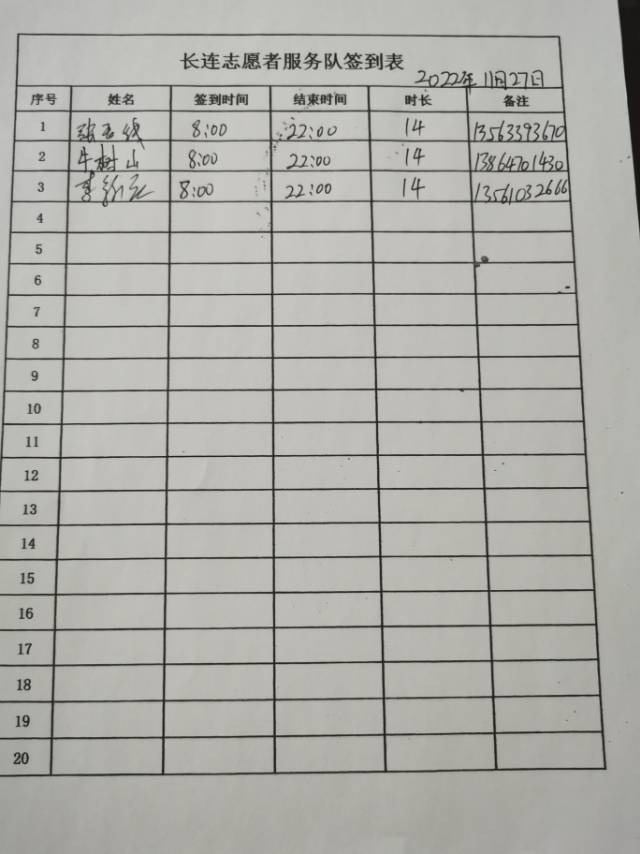 长连志愿者服务队签到表
2022年11月27日
序号 姓名 签到时间 结束时间 时长 备注
1 8:00 22:00 14 13563393670
2 牛树山 8:00 22:00 14 13864701430
3 李 8:00 22:00 14 13561032666
4
5
6
7
8
9
10
11
12
13
14
15
16
17
18
19
20